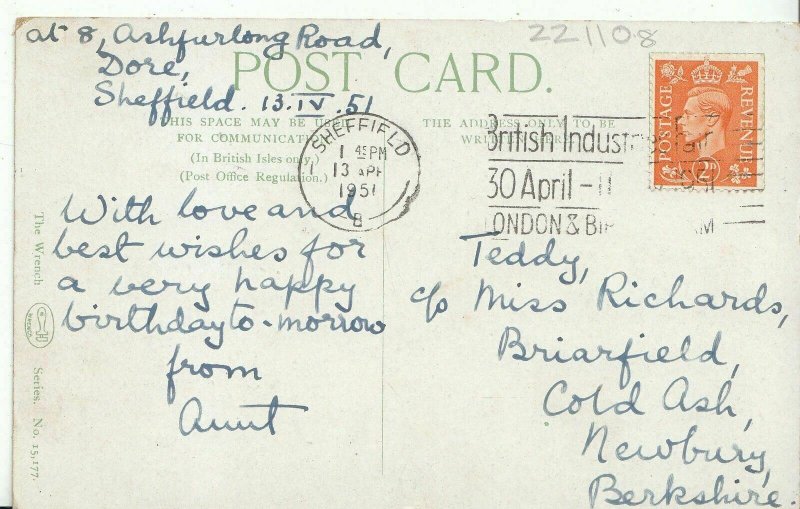 at 8, Ashfurlong Road,
Dore,
Sheffield. 13.IV.51
221108
POST CARD.
THIS SPACE MAY BE USED
FOR COMMUNICATION
(In British Isles only.)
(Post Office Regulation.)
THE ADDRESS ONLY TO BE
SHEFFIELD
1 45 PM
13 APR
1951
B
British Industries Fair
30 April - 11
LONDON & BIRMINGHAM
POSTAGE
REVENUE
2D
With love and
best wishes for
a very happy
birthday to-morrow
from
Aunt
Teddy,
c/o Miss Richards,
Briarfield,
Cold Ash,
Newbury,
Berkshire.
The Wrench
Series. No. 15,177.